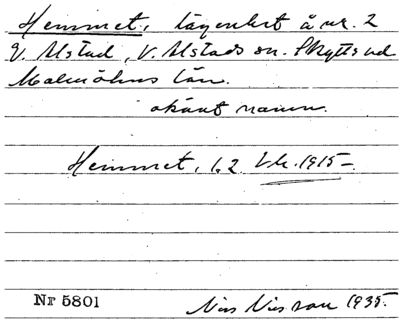 Hemmet, lägenhet å nr. 2
V. Alstad, V. Alstads sn. Skytts hd
Malmöhus län.
okänt namn.
Hemmet, 1.2 1915
Nr 5801 Nils Nilsson 1935.